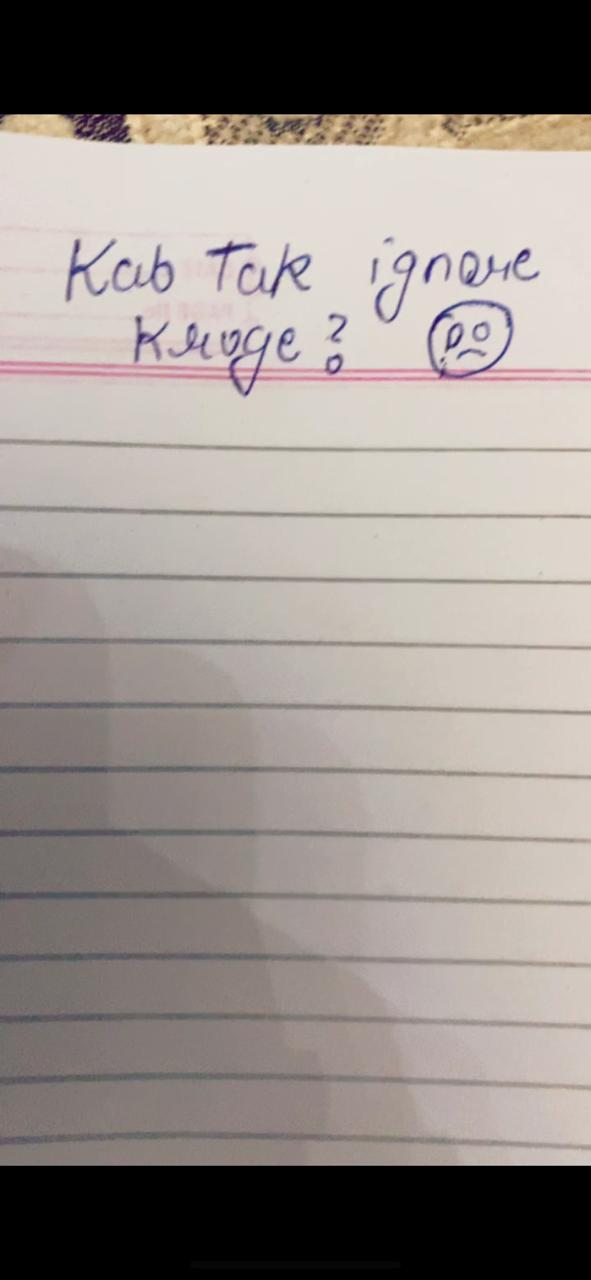 Kab Tak ignore
Kroge?